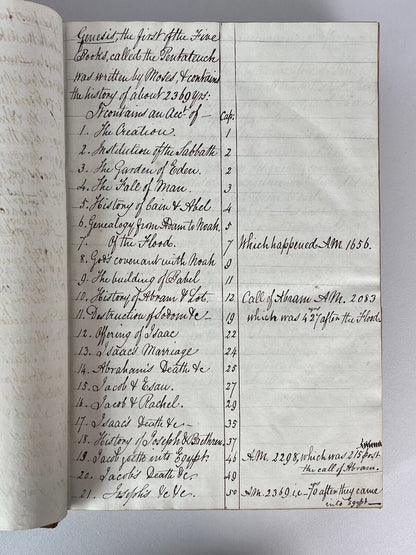 Genesis, the first of the Five
Books, called the Pentateuch
was written by Moses, & contains
the history of about 2369 yrs:
It contains an Acct. of — Cap.
1. The Creation. 1
2. Institution of the Sabbath 2
3. The Garden of Eden. 2
4. The Fall of Man. 3
5. History of Cain & Abel 4
6. Genealogy from Adam to Noah. 5
7. Of the Flood. 7 Which happened A.M. 1656.
8. God's covenant with Noah 9
9. The building of Babel 11
10. History of Abram & Lot. 12 Call of Abram A.M. 2083
11. Destruction of Sodom &c — 19 which was 427 yrs after the Flood.
12. Offering of Isaac 22
13. Isaac's Marriage 24
14. Abraham's Death &c 25
15. Jacob & Esau. 27
16. Jacob & Rachel. 29
17. Isaac's Death &c — 35
18. History of Joseph & Brethren. 37
19. Jacob goeth into Egypt. 46 A.M. 2298, which was 215 post
the call of Abram.
20. Jacob's Death &c — 49
21. Joseph's &c &c. 50 A.M. 2369 i.e — 70 after they came
into Egypt —